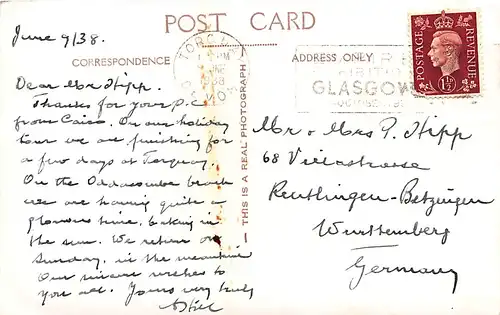 POST CARD
June 9/38.
CORRESPONDENCE
ADDRESS ONLY
TORQUAY
DEVON
GLASGOW
POSTAGE
REVENUE
1½D
THIS IS A REAL PHOTOGRAPH
Dear Mr Hipp.
Thanks for your P.C.
from Cairo. On our holiday
tour we are finishing for
a few days at Torquay.
On the Oddacombe beach
we are having quite a
glamorous time, baking in
the sun. We return on
Sunday, in the meantime
Our sincere wishes to
you all. Yours very truly
Mr & Mrs P. Hipp
68
Reutlingen-Betzingen
Wurttemberg
Germany